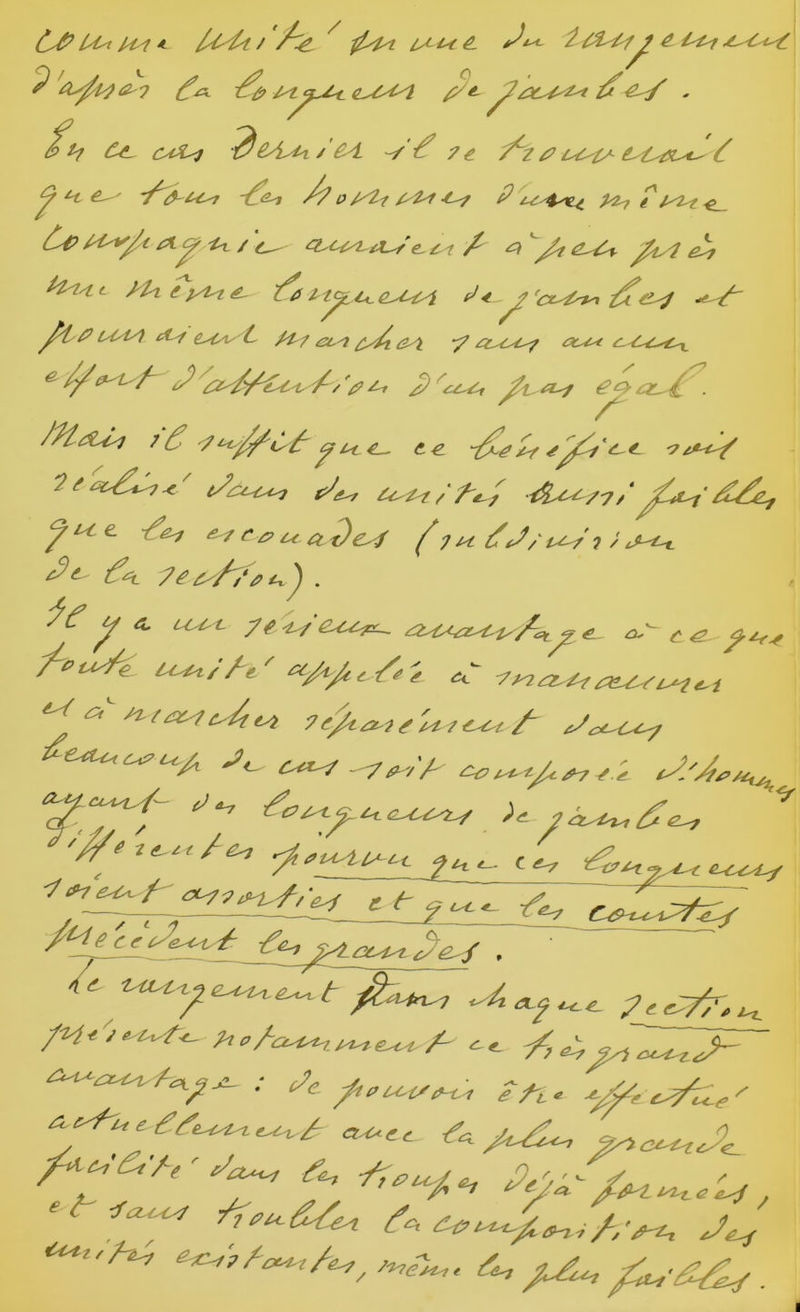 comme unité en vue du rangement
d'après la longueur de jambes.
En ce cas dernier il se trouverait
que tous les hommes d'une même
compagnie auraient à peu près
une même longueur de jambes et
pourraient marcher sans aucun
effort d'attention d'un pas égal.
Mais il suffit que ce bénéfice soit
réalisé dans des unités aussi faibles
que les escouades (subdivision
de la section).
Il y a un sérieux avantage à ce que
toute unité appelée à manœuvrer
et à marcher séparément dans
beaucoup de cas soit composée d'hommes
ayant des longueurs de jambes
différentes pourvu que ces longueurs
soient assorties et que les courtes
précèdent les grandes.
Le rangement dans chaque section
présente notamment ce très grand
avantage : de pouvoir être effectué
actuellement avec la plus grande
facilité dans les troupes déjà formées,
et sans troubler la composition des
unités existantes, même les plus faibles.